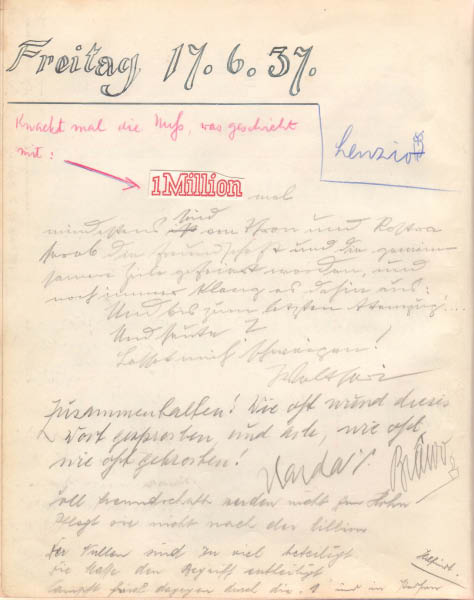 Freitag 17.6.37.
Knackt mal die Nuß, was geschieht
mit:
Lenzio
1 Million mal
mindestens sind von Thron und Rostra
herab die Freundschaft und die gemein-
samen gefeiert worden, und
noch immer klang es dahin aus:
Und bis zum letzten Atemzug...
Und heute?
Lasset mich schweigen!
Zusammenhalten! Wie oft wurde dieses
Wort gesprochen, und ach, wie oft,
wie oft gebrochen!
Bravo
Soll Freundschaft werden nicht zum Hohn
nicht nach der Million
Der Nullen sind zu viel beteiligt
Die Masse den Begriff entheiligt
dagegen durch die "1" und in